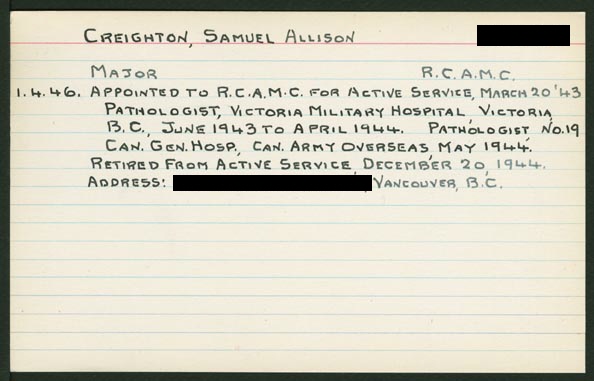 CREIGHTON, SAMUEL ALLISON
MAJOR R.C.A.M.C.
1.4.46. APPOINTED TO R.C.A.M.C. FOR ACTIVE SERVICE, MARCH 20 '43
PATHOLOGIST, VICTORIA MILITARY HOSPITAL, VICTORIA,
B.C., JUNE 1943 TO APRIL 1944. PATHOLOGIST, NO.19
CAN. GEN. HOSP., CAN. ARMY OVERSEAS, MAY 1944.
RETIRED FROM ACTIVE SERVICE, DECEMBER 20, 1944.
ADDRESS: VANCOUVER, B.C.